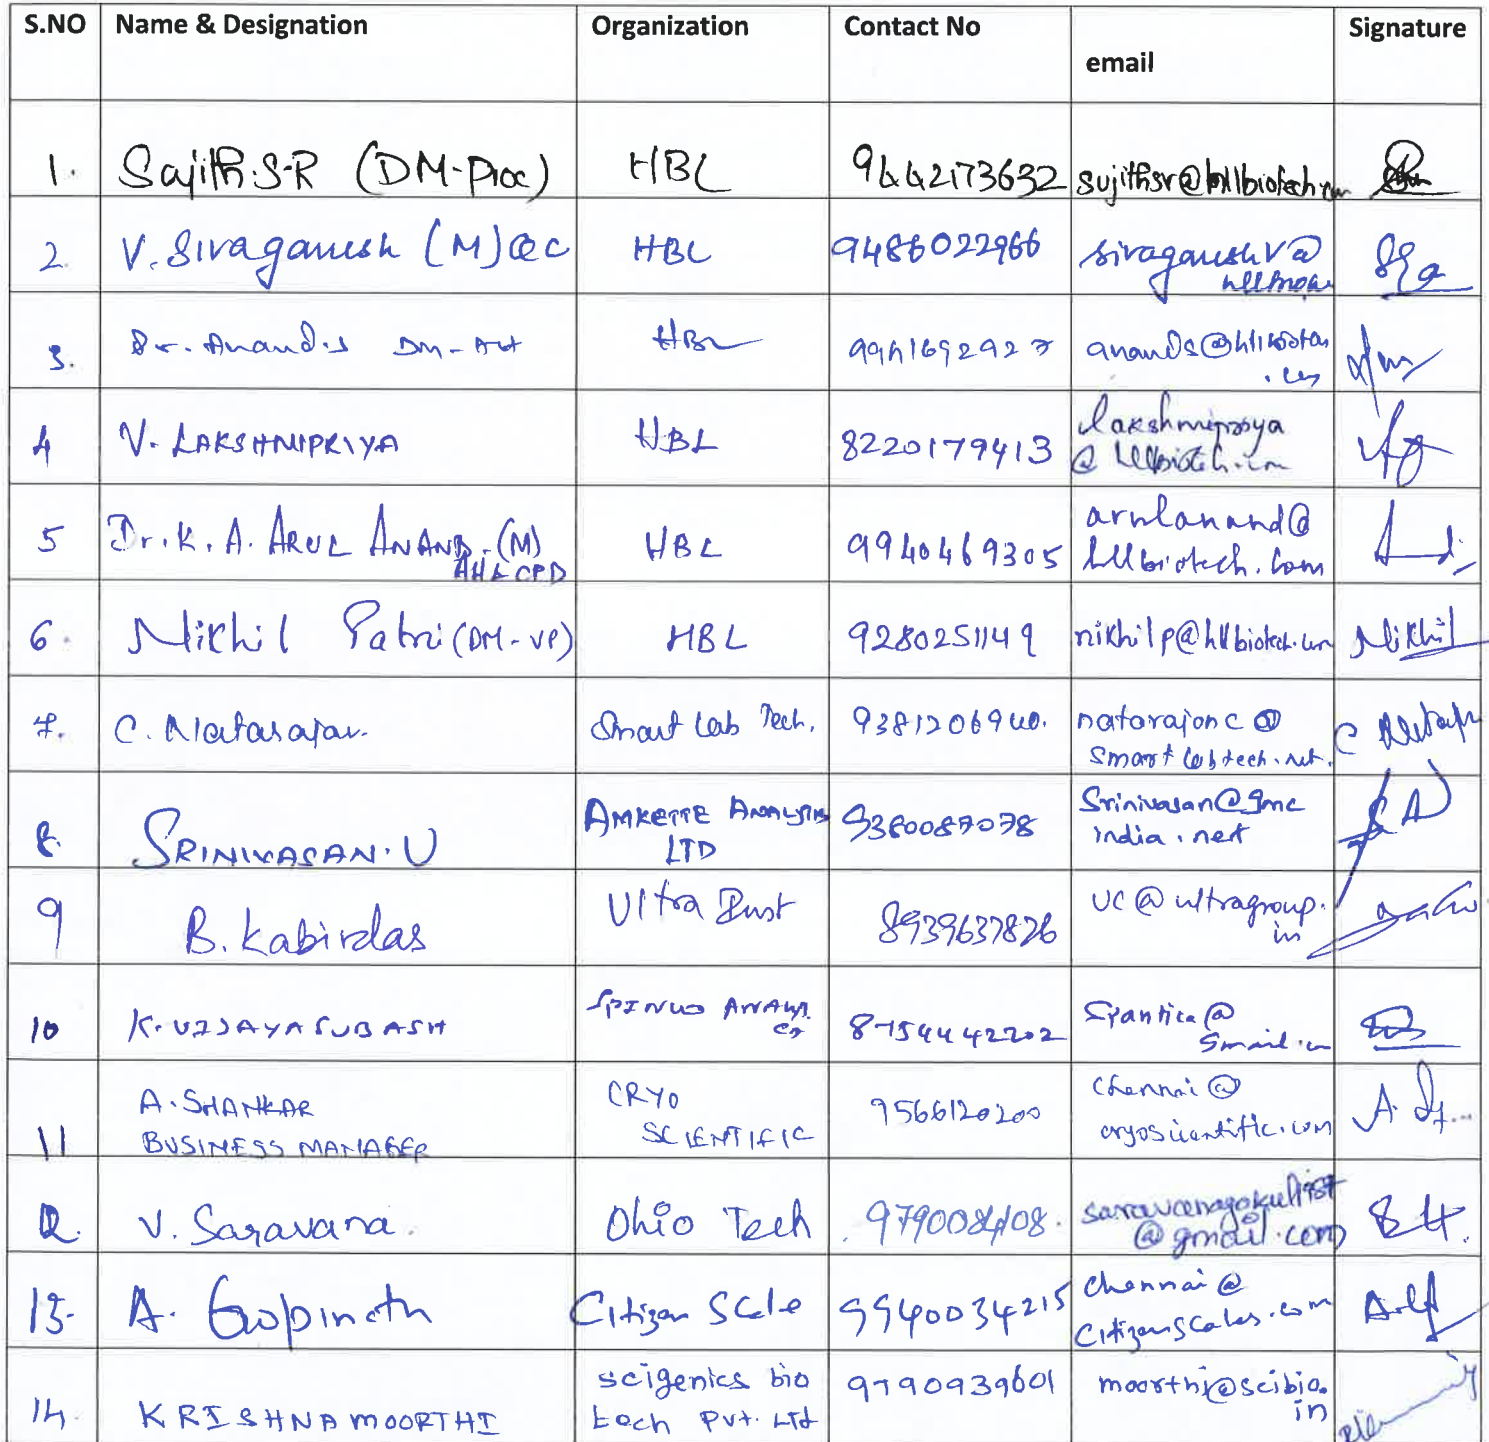 S.NO Name & Designation Organization Contact No email Signature
1. Sajith.S.R (DM-Proc) HBL 9442173632 sujithsr@hllbiotech.com
2. V. Sivaganesh (M) QC HBL 9486022966 sivaganeshv@
3. Dr. Anand.s DM- HBL 9941692927 anands@hllbiotech
.com
4 V. LAKSHMIPRIYA HBL 8220179413 lakshmipriya
@hllbiotech.com
5 Dr. K. A. ARUL ANAND. (M) HBL 9940469305 arulanand@
AH& CPD hllbiotech.com
6. Nikhil Patri (DM-VP) HBL 9280251149 nikhilp@hllbiotech.com Nikhil
7. C. Natarajan. Smart Lab Tech. 9381206940. natarajanc@
smartlabtech.net.
8. SRINIVASAN. U AMKETTE ANALYTIS 9380087078 Srinivasan@gmc
LTD india.net
9 B. Kabirdas Ultra Dust 8939637826 uc@ultragroup.
in
10 K. VIJAYASUBASH SPINCO 8754442202 Spantica@
gmail.com
11 A. SHANKAR CRYO 9566120200 chennai@
BUSINESS MANAGER SCIENTIFIC cryoscientific.com
12. V. Saravana. Ohio Tech 9790084108.
@gmail.com
13. A. Gopinath Citizen Scale 9940034215 chennai@
Citizenscales.com
14. KRISHNAMOORTHI scigenics bio 9790939601 moorthi@scibio.
tech Pvt. Ltd in